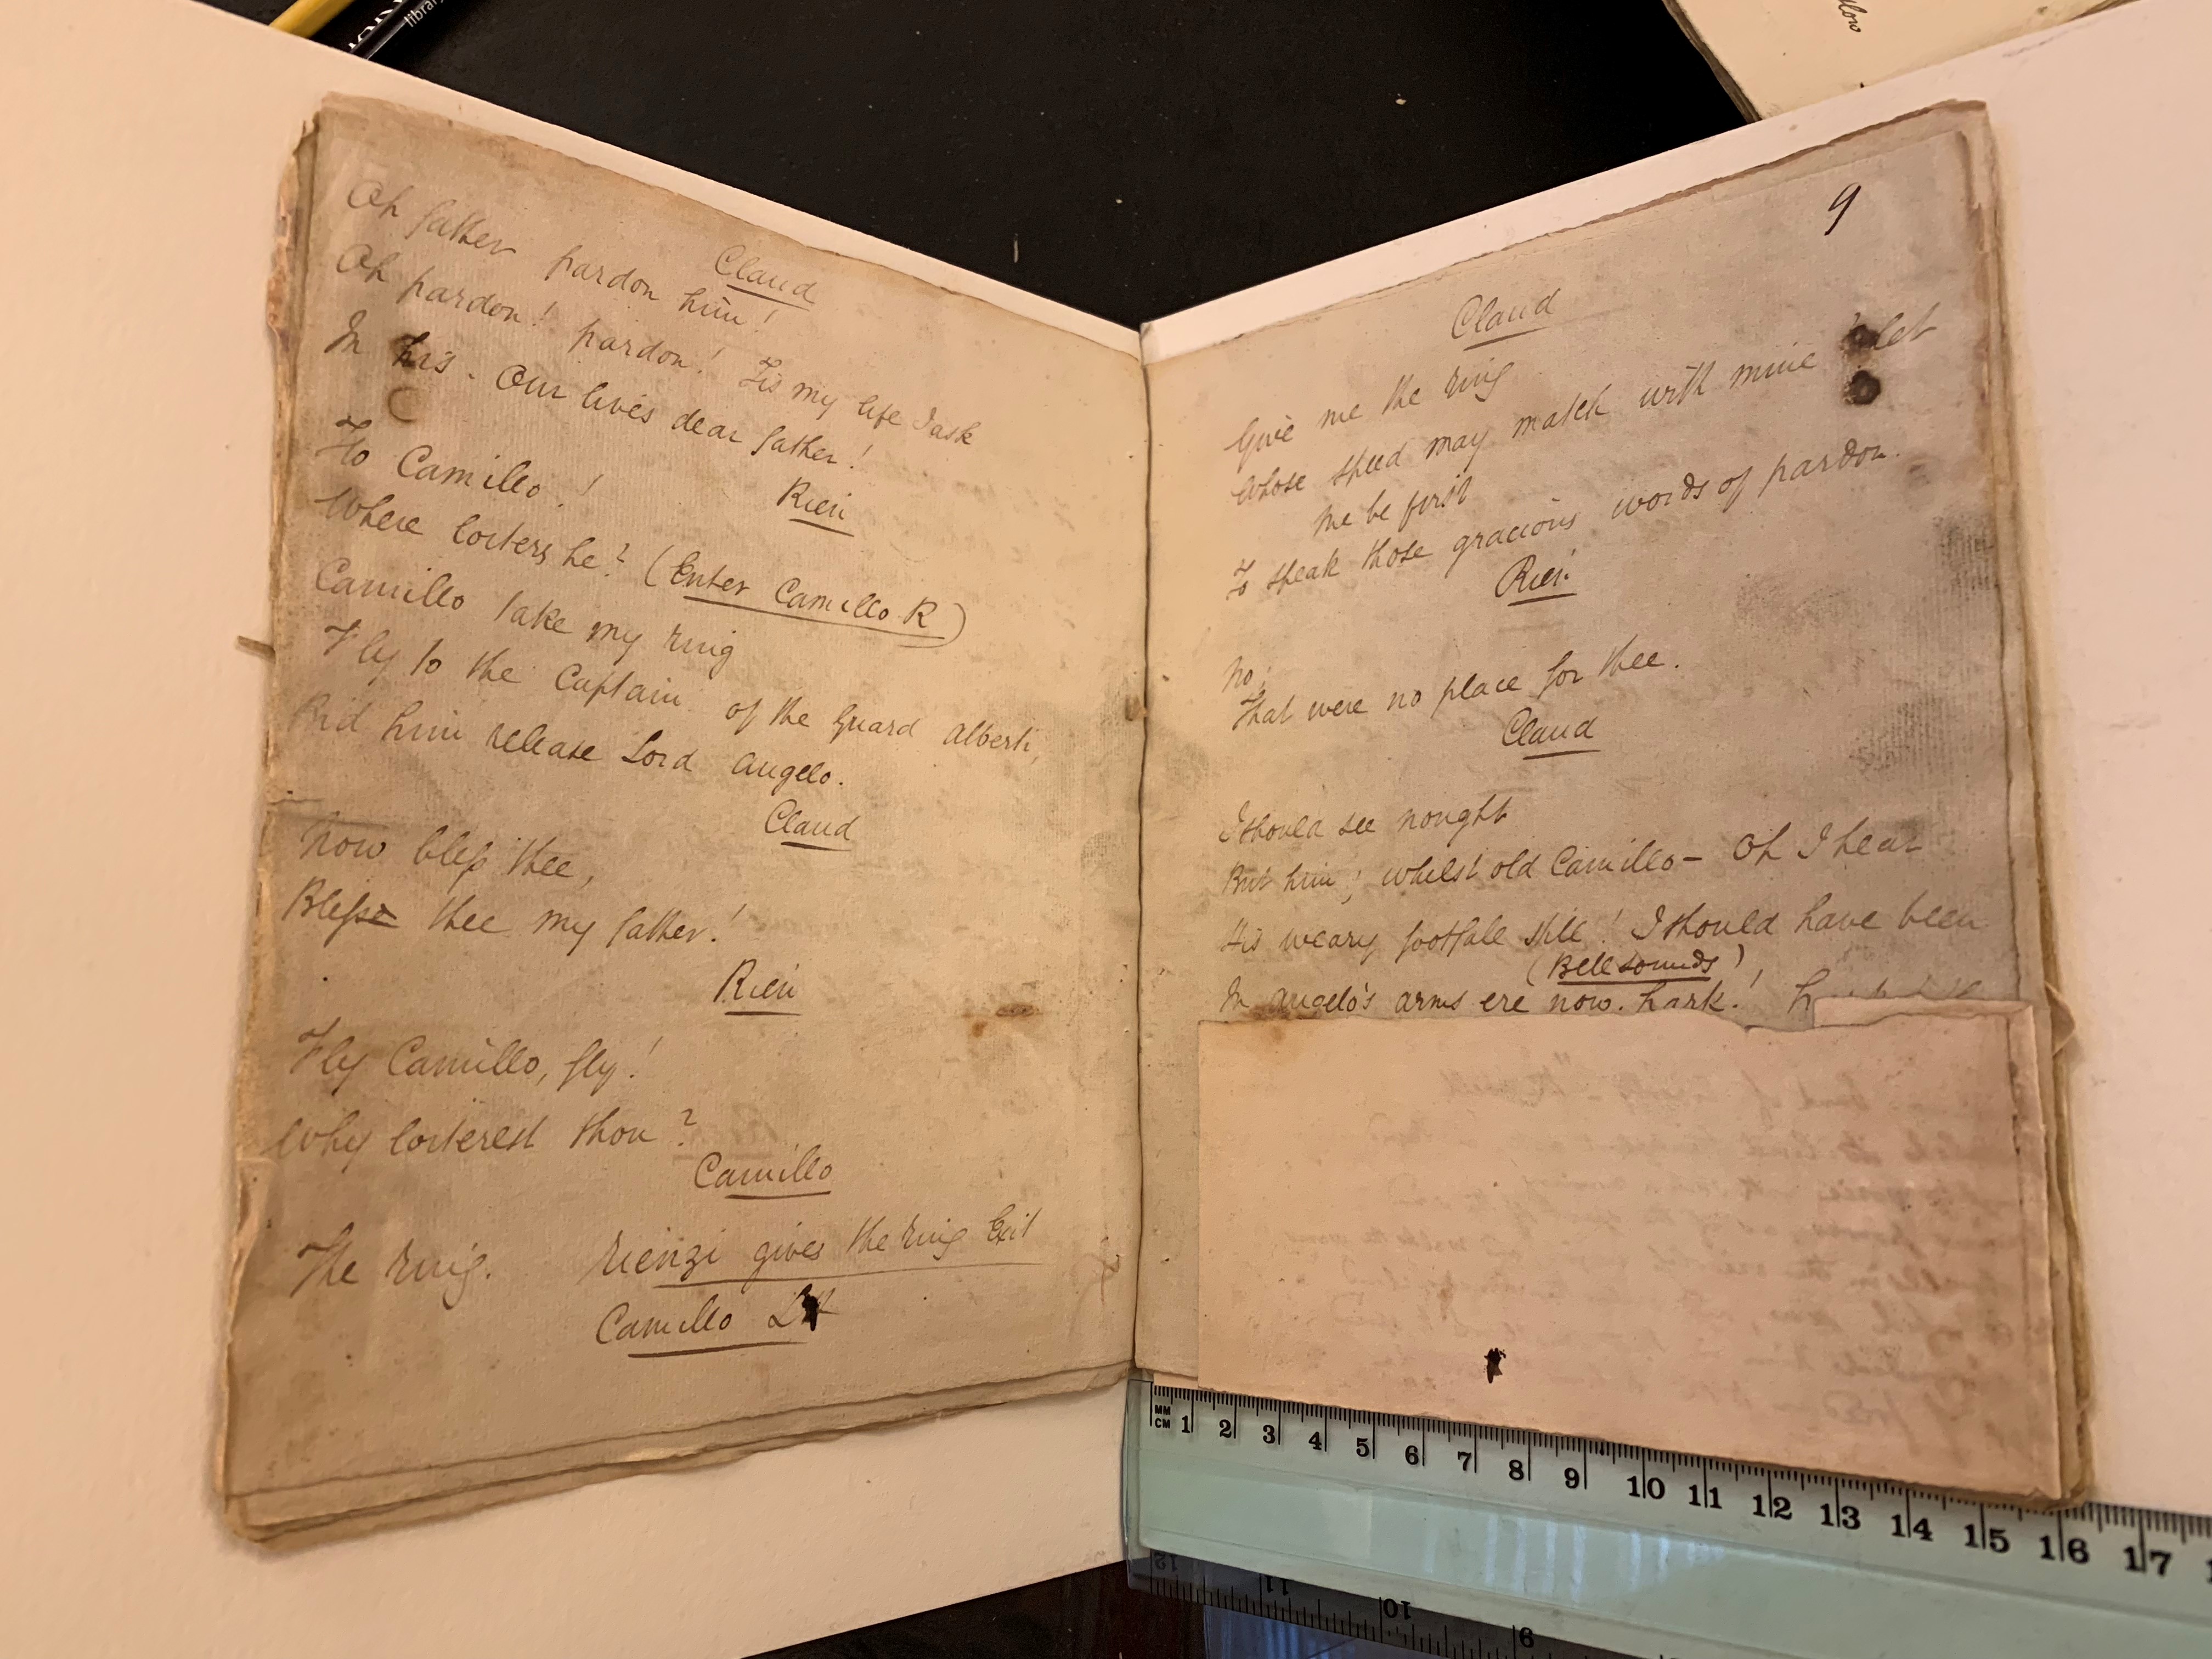 Claud
Oh father pardon him!
Oh pardon! pardon! Tis my life I ask
In his. Our lives dear father!
Rien
Ho Camillo!
Where loiters he? (Enter Camillo R)
Camillo take my ring
Fly to the Captain of the Guard Alberti,
Bid him release Lord Angelo.
Claud
Now bless thee,
Bless thee my father!
Rien
Fly Camillo, fly!
Why loiterest thou?
Camillo
The ring. Rienzi gives the ring Exit
Camillo
9
Claud
Give me the ring
Whose speed may match with mine let
me be first
To speak those gracious words of pardon.
Rien
No;
That were no place for thee.
Claud
I should see nought
But him; whilst old Camillo— Oh I hear
His weary footfall still! I should have been
(Bell sounds)
In Angelo's arms ere now. hark!
MM
CM 1 2 3 4 5 6 7 8 9 10 11 12 13 14 15 16 17
12 11 10 9